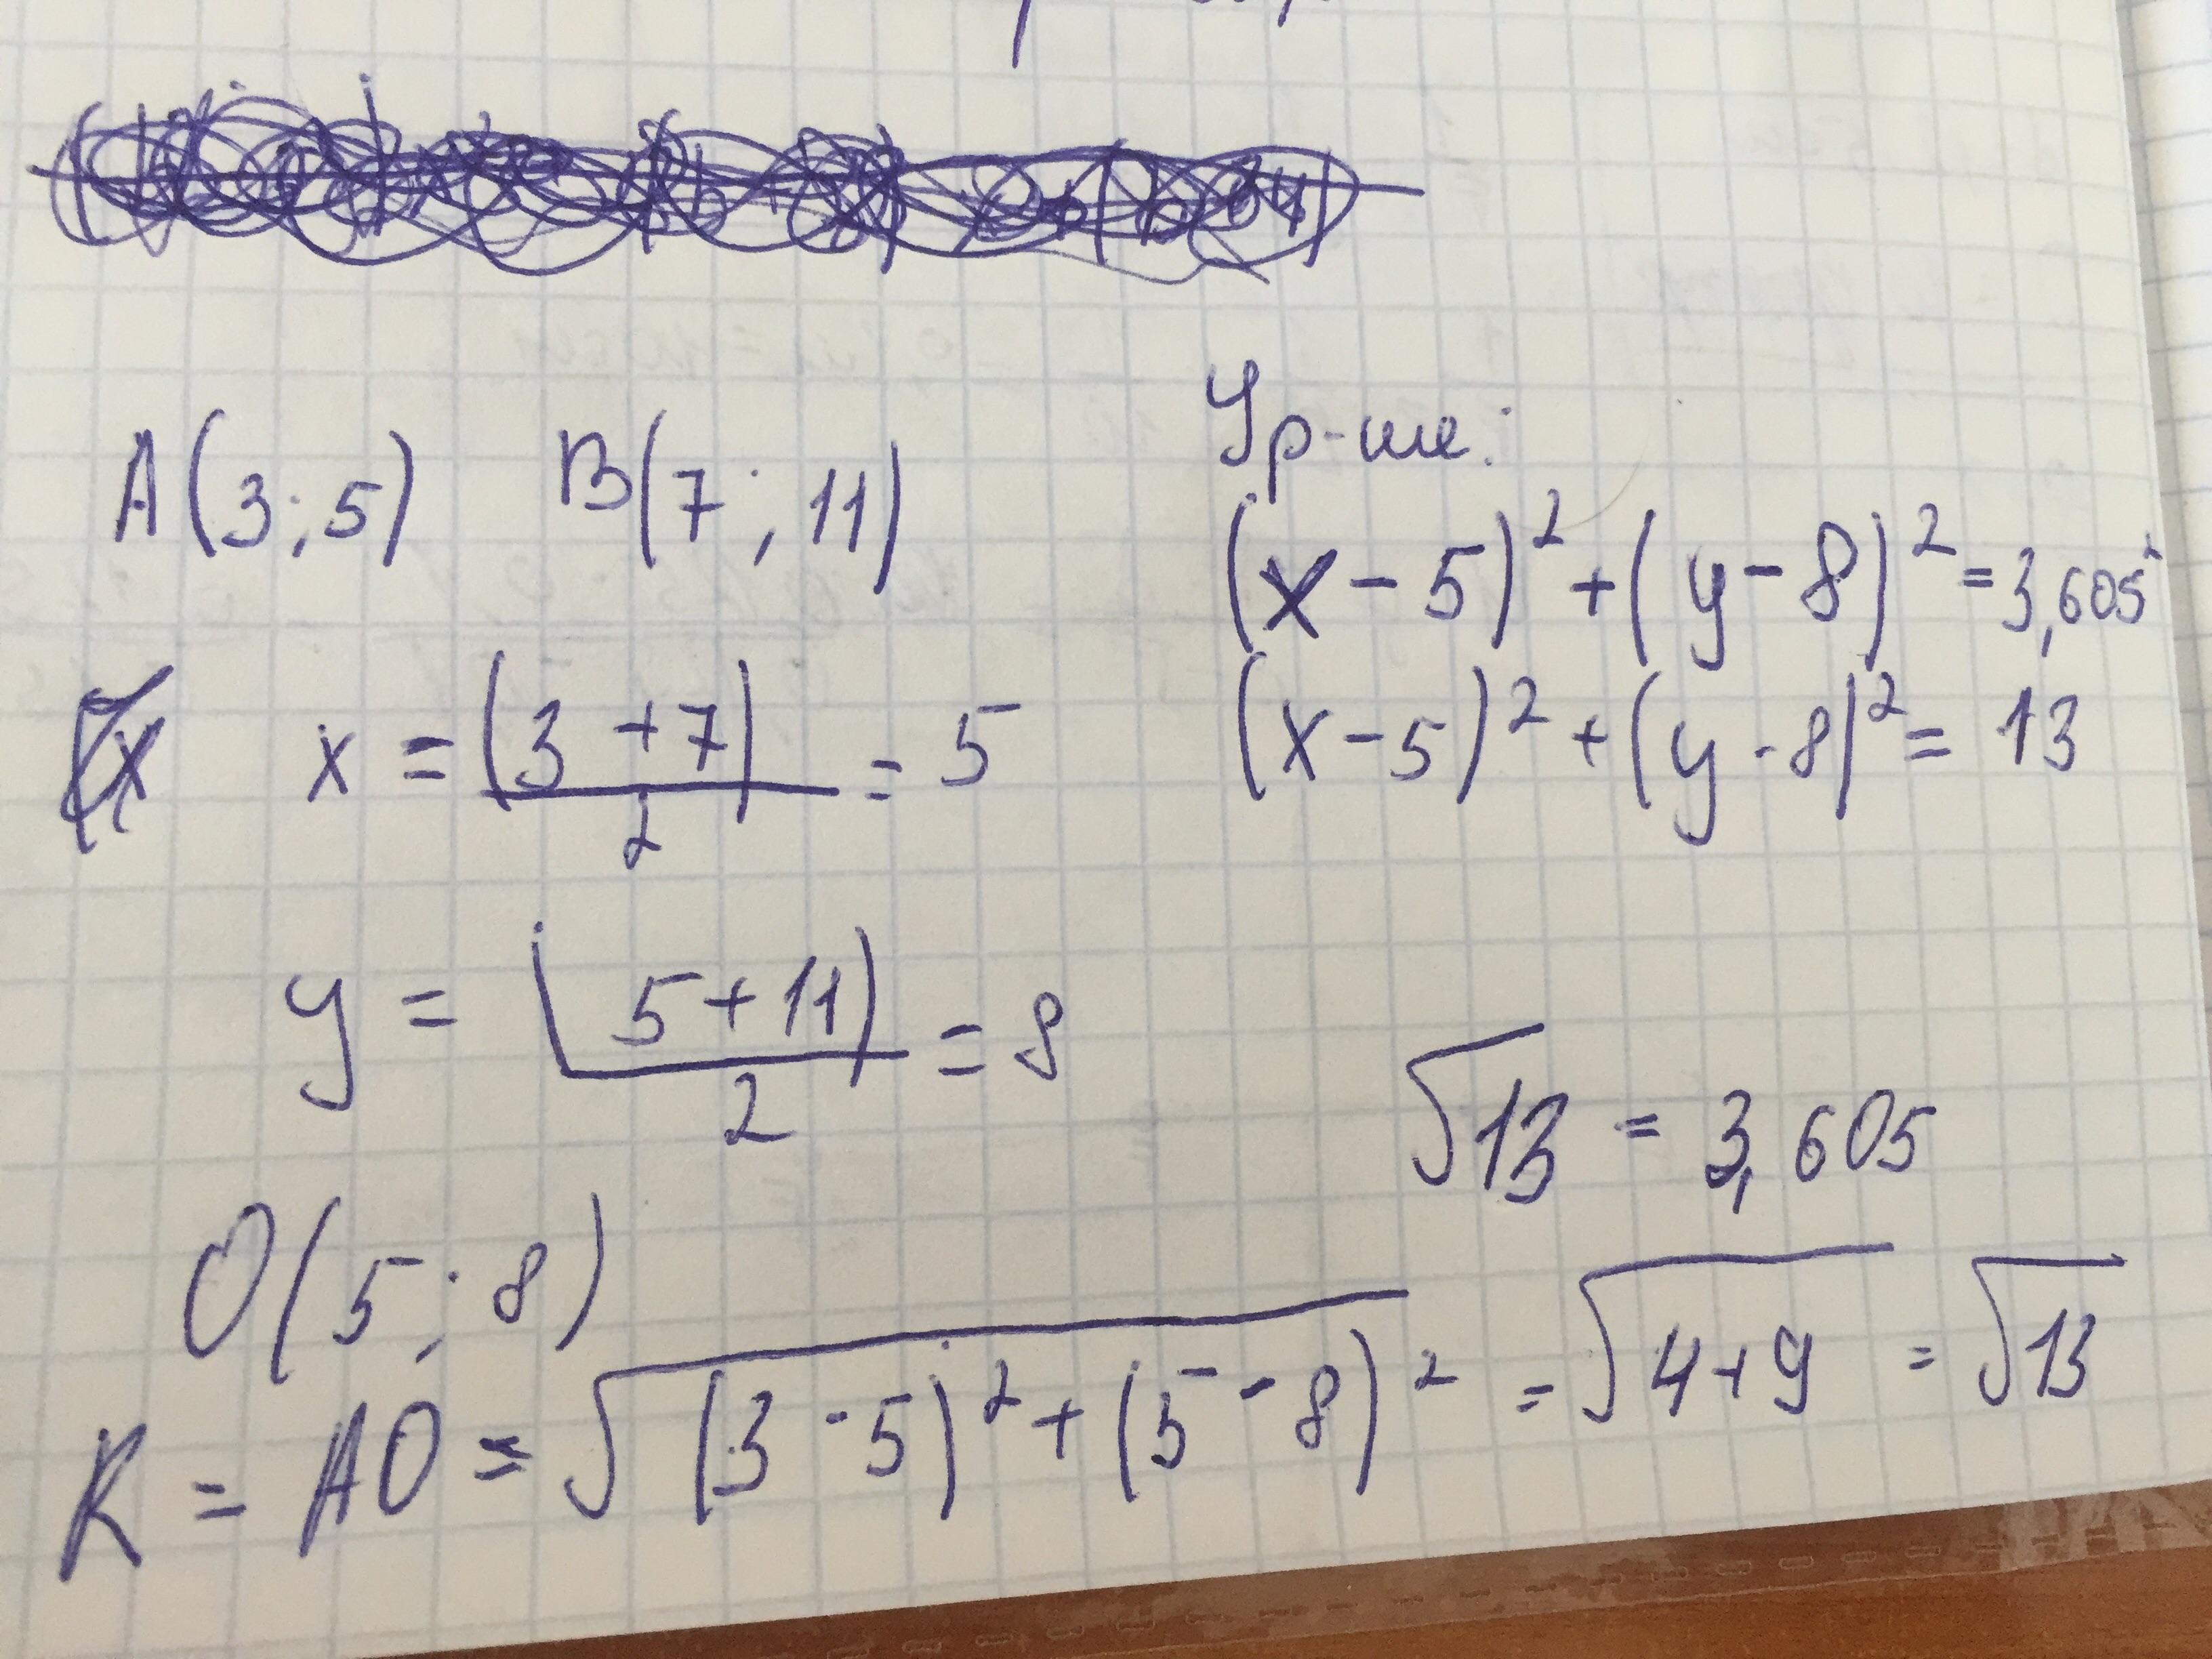 A(3;5) B(7;11)
x = (3+7)/2 = 5
y = (5+11)/2 = 8
O(5;8)
R = AO = √(3-5)²+(5-8)² = √4+9 = √13
Ур-ие:
(x-5)²+(y-8)²=3,605²
(x-5)²+(y-8)²=13
√13 = 3,605